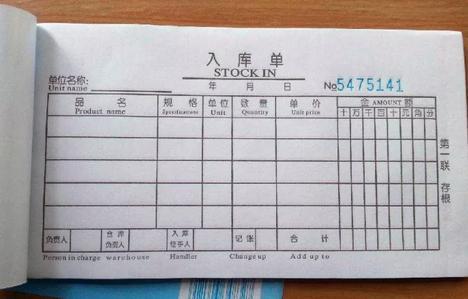 入库单
STOCK IN
单位名称:
Unit name
年 月 日
No 5475141
品名 规格 单位 数量 单价 金 AMOUNT 额
Product name Specifications Unit Quantity Unit price
十 万 千 百 十 元 角 分
第一联 存根
负责人 仓库负责人 入库经手人 记账 合计
Person in charge warehouse Handler Change up Add up to